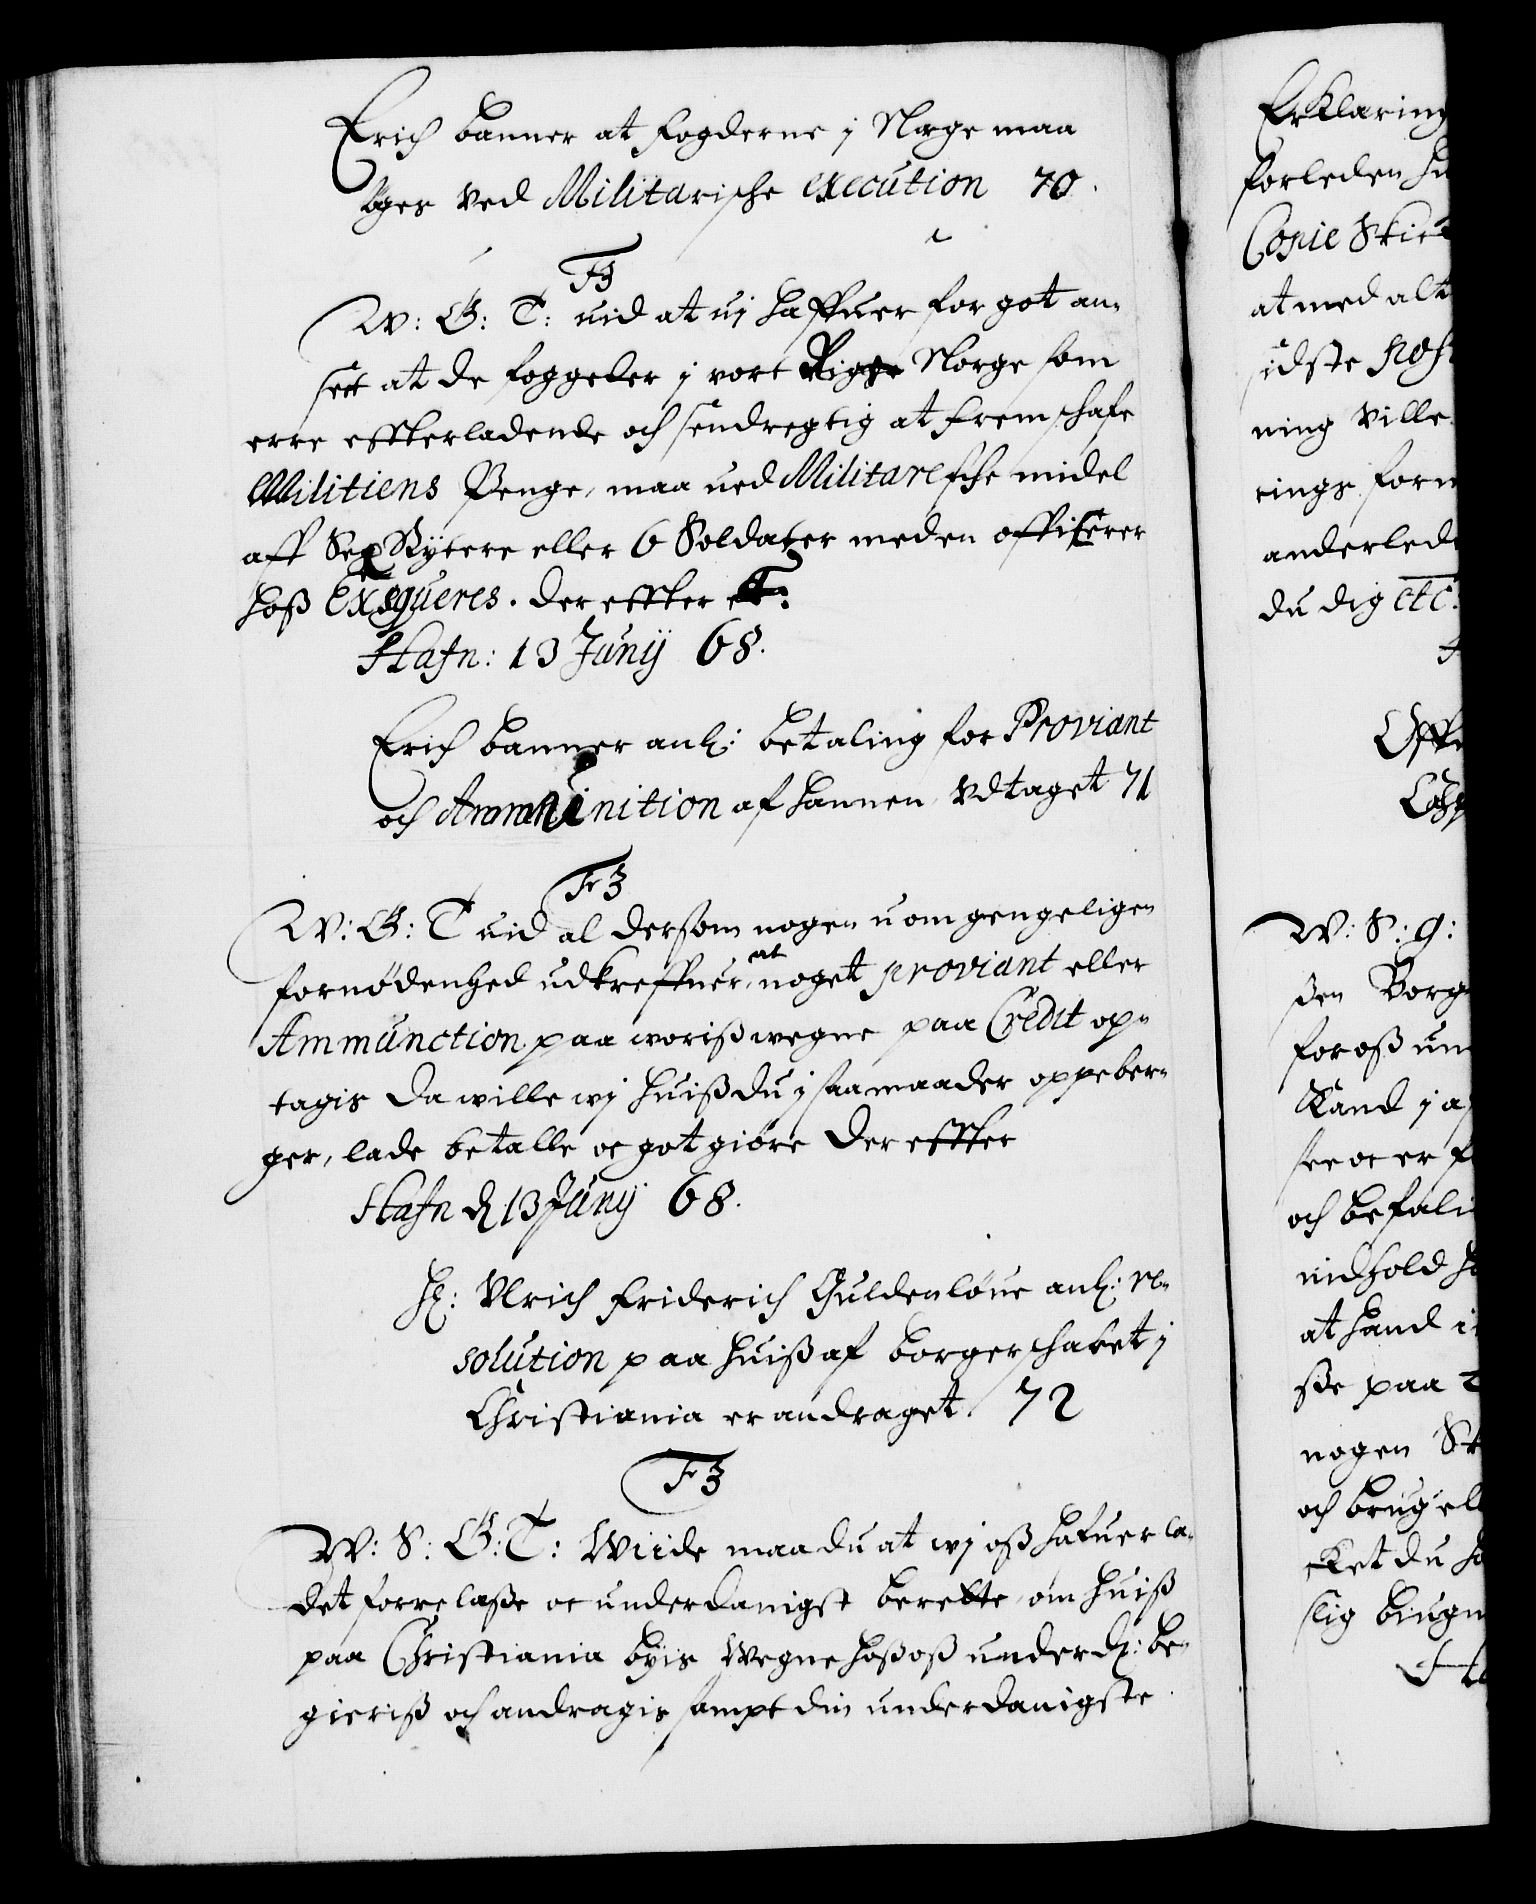 Erich banner at fogderne j Norge maa
ages ved Militarische execution 70.
F3
W: G: T: uid at uj haffuer for got an-
seet at de foggeder j vort Rige Norge som
erre effterladende och sendregtig at fremschafe
Militiens Penge, maa ued Militaresche midel
aff Sex Rytere eller 6 Soldater med en officerer
hoß Exequeres. der effter etc:
Hafn: 13 Junij 68.
Erich banner anl: betaling for Proviant
och Ammunition af hannen vdtaget 71
F3
W: G: T uid al dersom nogen uomgengeligen
fornødenhed udkreffuer, at noget proviant eller
Ammunction paa woriß wegne paa Credit op-
tagis da wille wj huiß du j saa maader oppeber-
ger, lade betalle oc got giøre Der effter
Hafn d 13 Junij 68.
H: Vlrich Friderich Guldenløue anl: re-
solution paa huiß af borgerschabet j
Christiania er andraget. 72
F3
W: S: G: T: Wiide maa du at wj oß hafuer la-
det forrelaße oc underdanigst berette, om huiß
paa Christiania byis Wegne hoß oß underd: be-
gieriß och andragis sampt din underdanigste
Erklaring
forleden
Copie
at med alt
sidste
ning ville
rings
anderlede
du dig etc:
W: S: G:
ßen Borg
for oß un
Kand j
see oc er
och befali
indhold
at hand
ße paa
nogen
och brug
du
slig